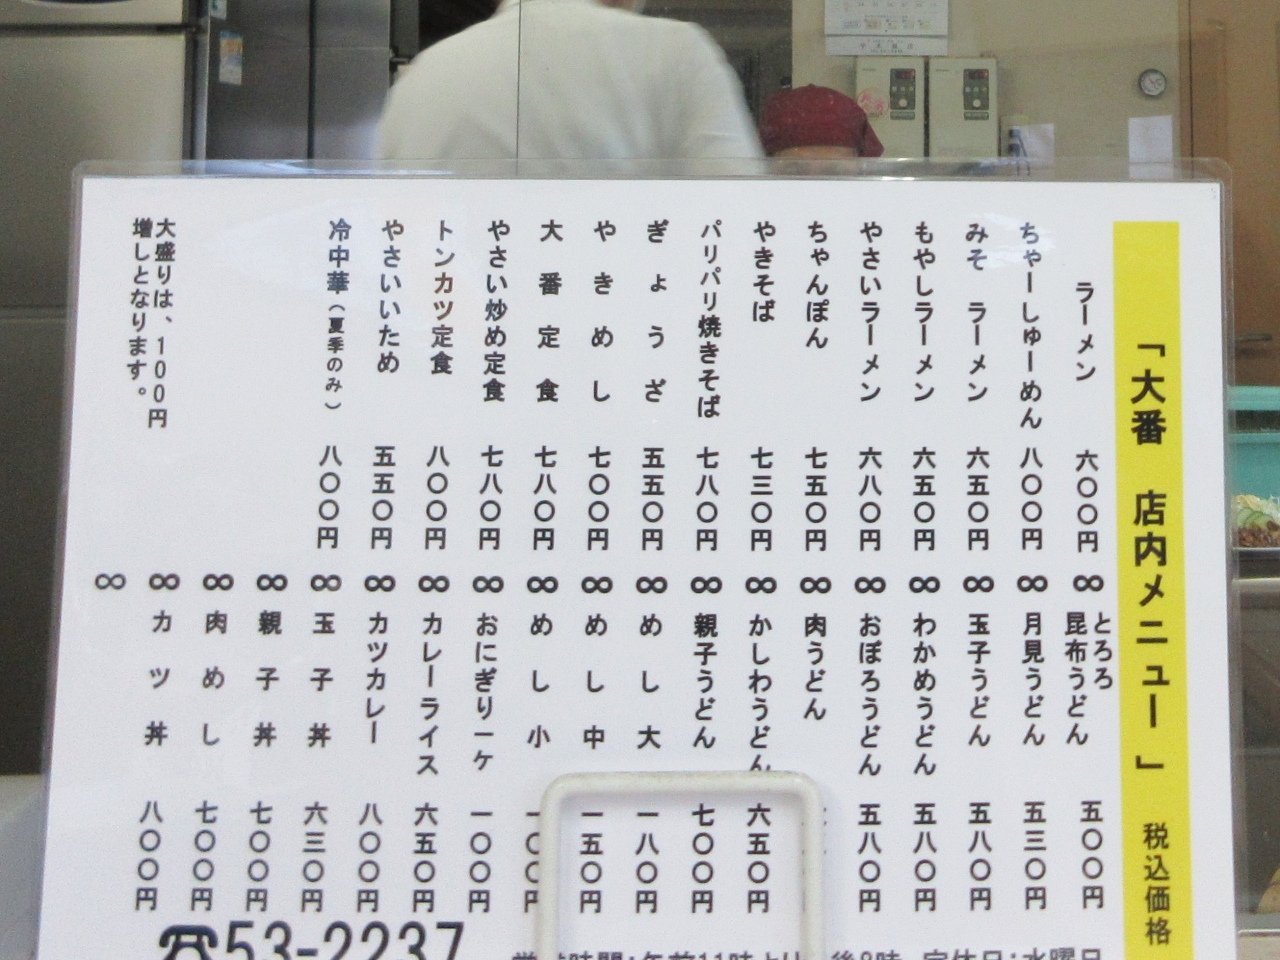 「大番 店内メニュー」 税込価格
ラーメン 六〇〇円
ちゃーしゅーめん 八〇〇円
みそ ラーメン 六五〇円
もやしラーメン 六五〇円
やさいラーメン 六八〇円
ちゃんぽん 七五〇円
やきそば 七三〇円
パリパリ焼きそば 七八〇円
ぎょうざ 五五〇円
やきめし 七〇〇円
大番定食 七八〇円
やさい炒め定食 七八〇円
トンカツ定食 八〇〇円
やさいいため 五五〇円
冷中華(夏季のみ) 八〇〇円
大盛りは、100円
増しとなります。
とろろ
昆布うどん 五〇〇円
月見うどん 五三〇円
玉子うどん 五八〇円
わかめうどん 五八〇円
おぼろうどん 五八〇円
肉うどん
かしわうどん 六五〇円
親子うどん 七〇〇円
めし大 一八〇円
めし中 一五〇円
めし小 一〇〇円
おにぎり一ケ 一〇〇円
カレーライス 六五〇円
カツカレー 八〇〇円
玉子丼 六三〇円
親子丼 七〇〇円
肉めし 七〇〇円
カツ丼 八〇〇円
☎53-2237
時間:午前11時より 後8時 定休日:水曜日